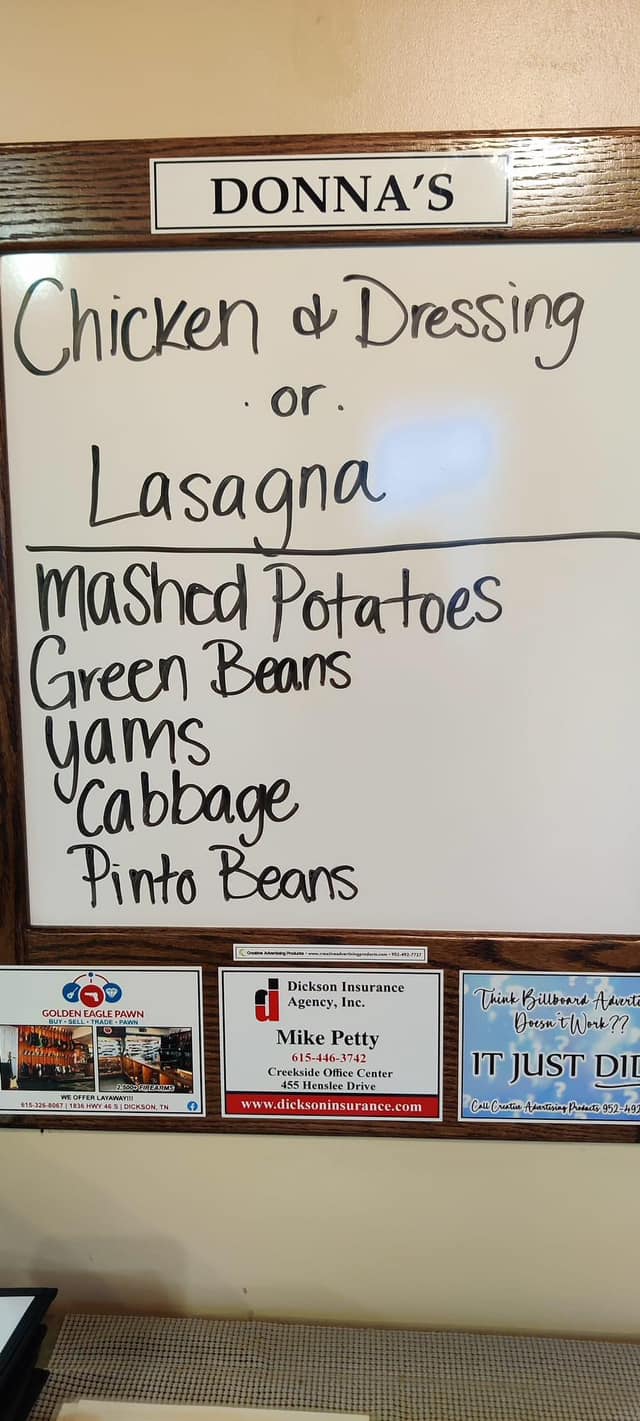 DONNA'S
Chicken & Dressing
. or .
Lasagna
Mashed Potatoes
Green Beans
Yams
Cabbage
Pinto Beans
Creative Advertising Products - www.creativeadvertisingproducts.com - 952-492-7737
GOLDEN EAGLE PAWN
BUY - SELL - TRADE - PAWN
2,500+ FIREARMS
WE OFFER LAYAWAY!!!
615-326-8067 | 1836 HWY 46 S | DICKSON, TN
di
Dickson Insurance
Agency, Inc.
Mike Petty
615-446-3742
Creekside Office Center
455 Henslee Drive
www.dicksoninsurance.com
Think Billboard Adverti
Doesn't Work??
IT JUST DID
Call Creative Advertising Products 952-492